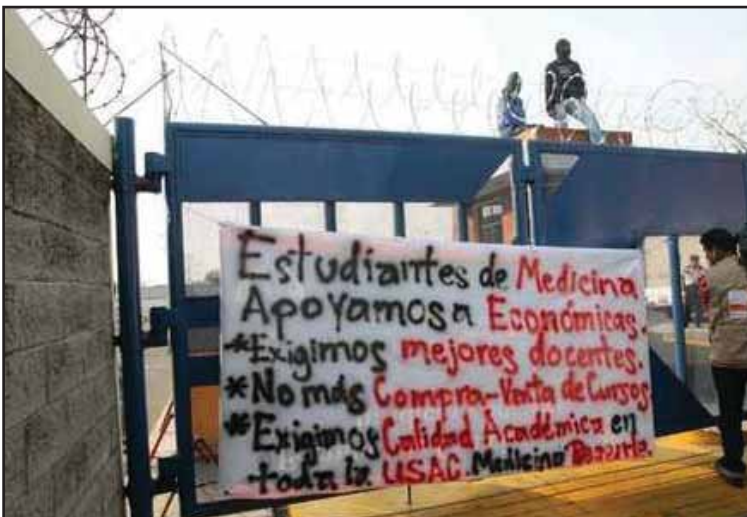 Estudiantes de Medicina
Apoyamos a Económicas.
*Exigimos mejores docentes.
*No más Compra-Venta de Cursos
*Exigimos Calidad Académica en
toda la USAC. Medicina